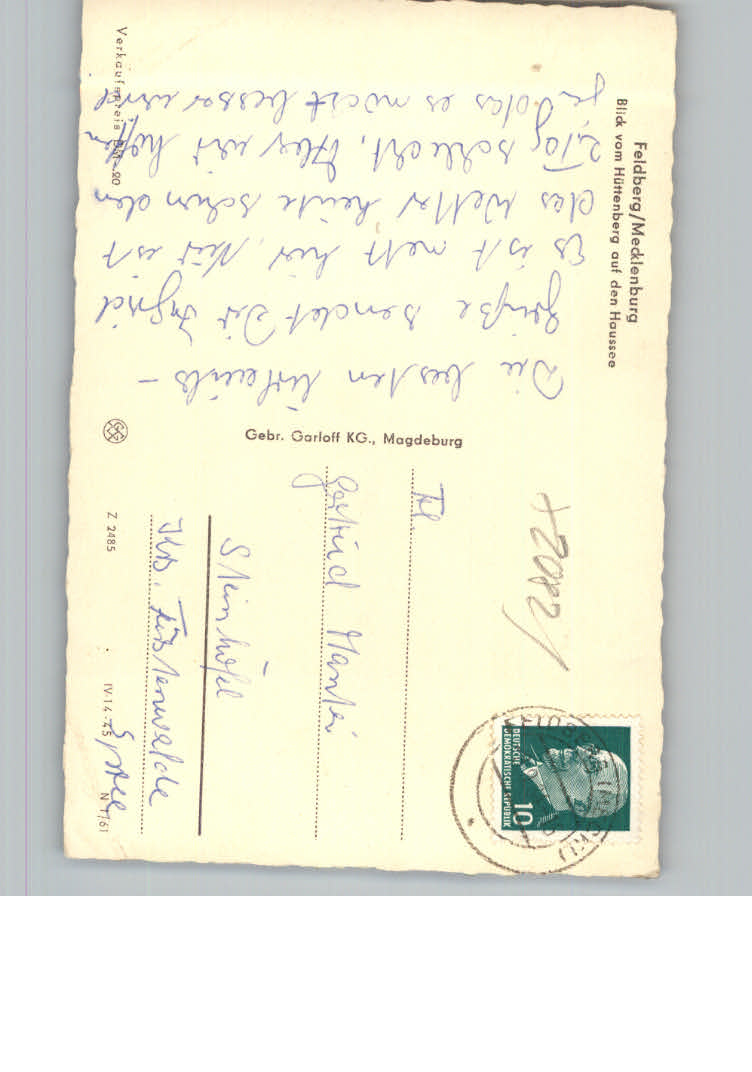 Feldberg/Mecklenburg
Blick vom Hüttenberg auf den Haussee
Die besten Urlaubs-
grüße sendet Dir Ingrid
Es ist nett hier, Nur ist
das Wetter heute schon den
2. Tag schlecht. Aber wir hoffen
ja, das es noch besser wird
Verkaufspreis DM -,20
Gebr. Garloff KG., Magdeburg
Z 2485
IV-14-45
N 1/61
+2082/
DEUTSCHE
DEMOKRATISCHE REPUBLIK
10
FELDBERG (MECKL)
Frl.
Gertrud Mantei
Steinhöfel
Krs. Fürstenwalde
Spree